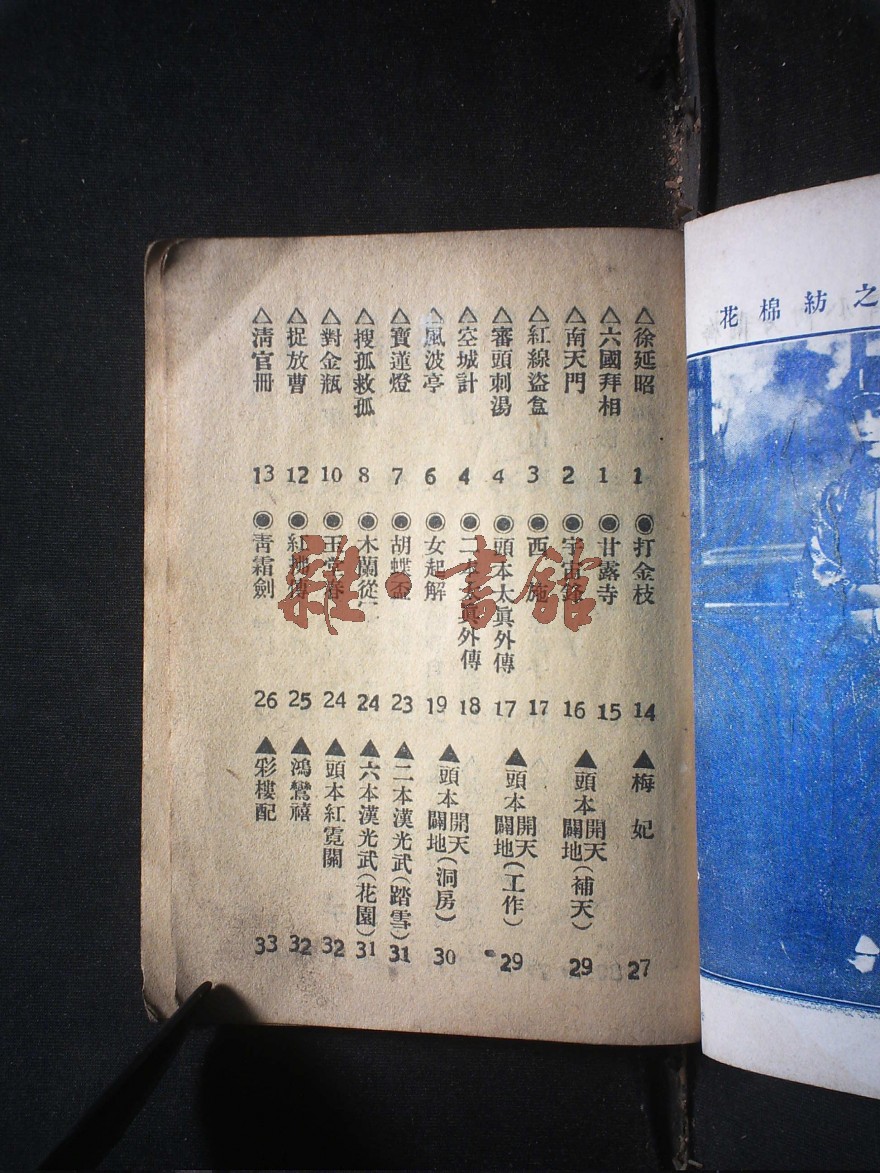 △徐延昭 1
△六國拜相 1
△南天門 2
△紅線盜盒 3
△審頭刺湯 4
△空城計 4
△風波亭 6
△寶蓮燈 7
△搜孤救孤 8
△對金瓶 10
△捉放曹 12
△清官冊 13
◉打金枝 14
◉甘露寺 15
◉宇宙鋒 16
◉西施 17
◉頭本太眞外傳 17
◉二本太眞外傳 18
◉女起解 19
◉胡蝶盃 23
◉木蘭從 24
◉玉堂春 24
◉紅拂傳 25
◉青霜劍 26
▲梅妃 27
▲頭本開天闢地(補天) 29
▲頭本開天闢地(工作) 29
▲頭本開天闢地(洞房) 30
▲二本漢光武(踏雪) 31
▲六本漢光武(花園) 31
▲頭本紅霓關 32
▲鴻鸞禧 32
▲彩樓配 33
之紡棉花
雜·書館